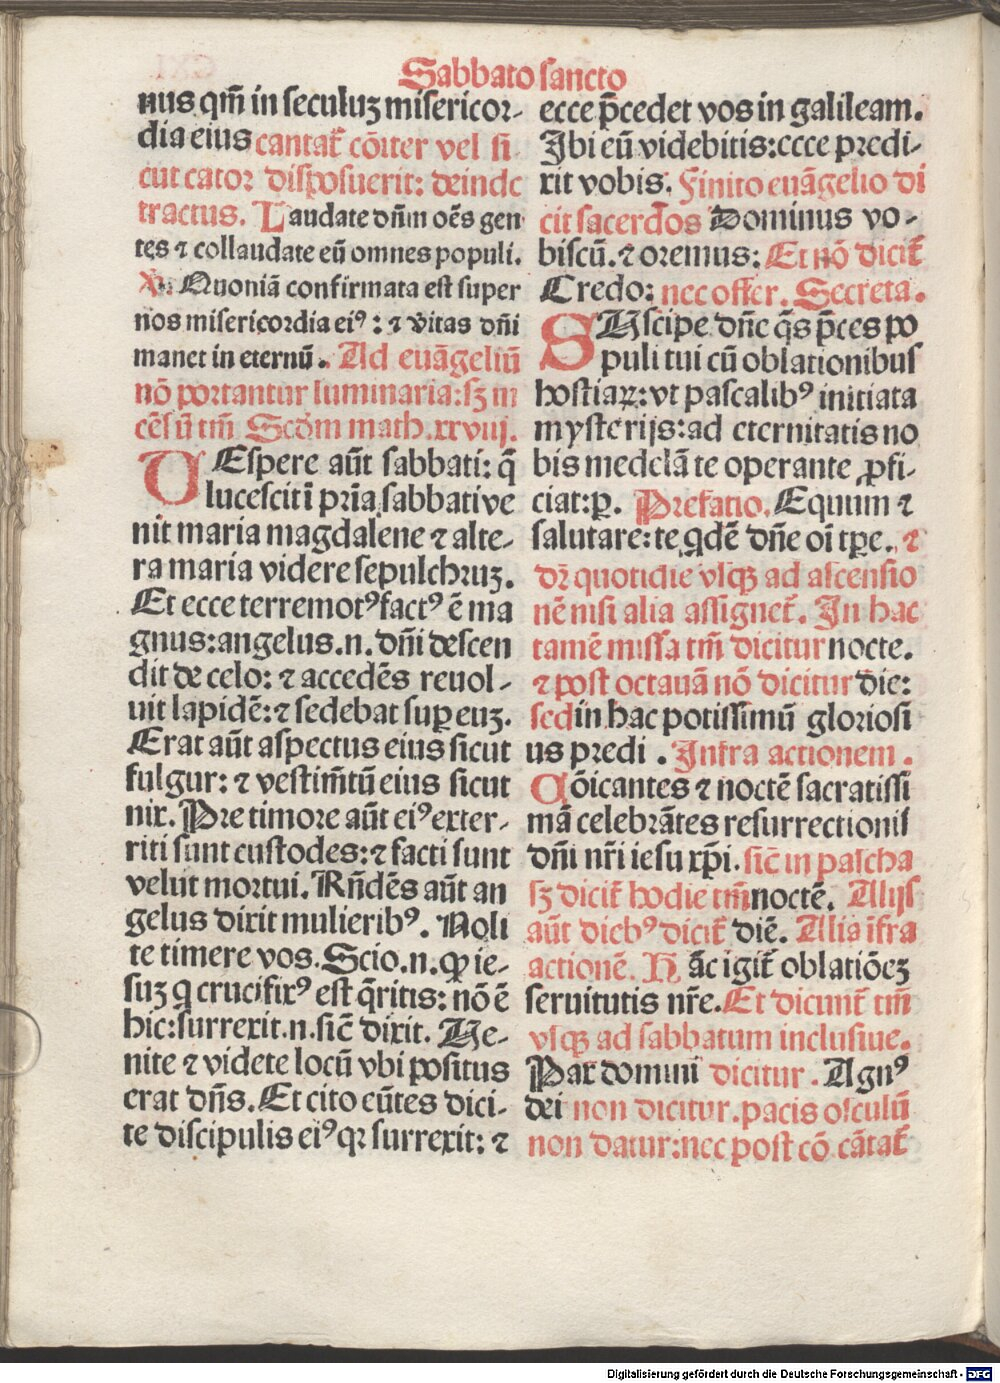 Sabbato sancto
nus qm̄ in seculuꝫ misericor-
dia eius cantat᷑ cōiter vel si
cut cator disposuerit: deinde
tractus. Laudate dñm oēs gen
tes ⁊ collaudate eū omnes populi.
V. Quoniā confirmata est super
nos misericordia eiꝰ: ⁊ veritas dñi
manet in eternū. Ad euāgeliū
nō portantur luminaria: sꝫ in
cēsū tm̄ Scdm math. xxviij.
VEspere aūt sabbati: q̄
lucescit ī prīa sabbati ve
nit maria magdalene ⁊ alte-
ra maria videre sepulchruꝫ.
Et ecce terremotꝰ factꝰ ē ma
gnus: angelus .n. dñi descen
dit de celo: ⁊ accedēs reuol-
uit lapidē: ⁊ sedebat suꝑ euꝫ.
Erat aūt aspectus eius sicut
fulgur: ⁊ vestimētū eius sicut
nix. Pre timore aūt eiꝰ exter-
riti sunt custodes: ⁊ facti sunt
velut mortui. Rn̄dēs aūt an
gelus dixit mulieribꝰ. Noli
te timere vos. Scio .n. ꝙ ie-
suꝫ q crucifixꝰ est q̄ritis: nō ē
hic: surrexit .n. sic̄ dixit. Ve-
nite ⁊ videte locū vbi positus
erat dn̄s. Et cito eūtes dici-
te discipulis eiꝰ qꝛ surrexit: ⁊
ecce p̄cedet vos in galileam.
Ibi eū videbitis: ecce predi-
xit vobis. Finito euāgelio di
cit sacerdos Dominus vo-
biscū. ⁊ oremus: Et nō dicit᷑
Credo: nec offer. Secreta.
SUscipe dñe q̄s p̄ces po
puli tui cū oblationibus
hostiaꝝ: vt pascalibꝰ initiata
mysterijs: ad eternitatis no
bis medelā te operante ꝓfi-
ciat: ꝑ. Prefatio. Equum ⁊
salutare: te qdē dñe oī tꝑe. ⁊
dr̄ quotidie vsqꝫ ad ascensio
nē nisi alia assignet᷑. In hac
tamē missa tm̄ dicitur nocte.
⁊ post octauā nō dicitur die:
sed in hac potissimū gloriosi
us predi. Infra actionem.
Cōicantes ⁊ noctē sacratissi
mā celebrātes resurrectionis
dñi nr̄i iesu xp̄i. sic̄ in pascha
sꝫ dicit᷑ hodie tm̄ noctē. Alijs
aūt diebꝰ dicit᷑ diē. Alia īfra
actionē. Hāc igit᷑ oblatiōeꝫ
seruitutis nr̄e. Et dicunt᷑ tm̄
vsqꝫ ad sabbatum inclusiue.
Pax domini dicitur. Agnꝰ
dei non dicitur. pacis osculū
non datur: nec post cō cātat᷑
Digitalisierung gefördert durch die Deutsche Forschungsgemeinschaft - DFG